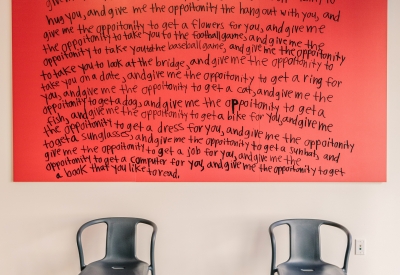 hug you, and give me the oppoitonity the hang out with you, and
give me the oppoitonity to get a flowers for you, and give me
the oppoitonity to take you to the football game, and give me the
oppoitonity to take you to the baseball game, and give me the oppoitonity
to take you to look at the bridge, and give me the oppoitonity to
take you on a date, and give me the oppoitonity to get a ring for
you, and give me the oppoitonity to get a cat, and give me the
oppoitonity to get a dog, and give me the oppoitonity to get a
fish, and give me the oppoitonity to get a bike for you, and give me
the oppoitonity to get a dress for you, and give me the oppoitonity
to get a sunglasses, and give me the oppoitonity to get a sunhat, and
give me the oppoitonity to get a job for you, and give me the
oppoitonity to get a computer for you, and give me the oppoitonity to get
a book that you like to read.